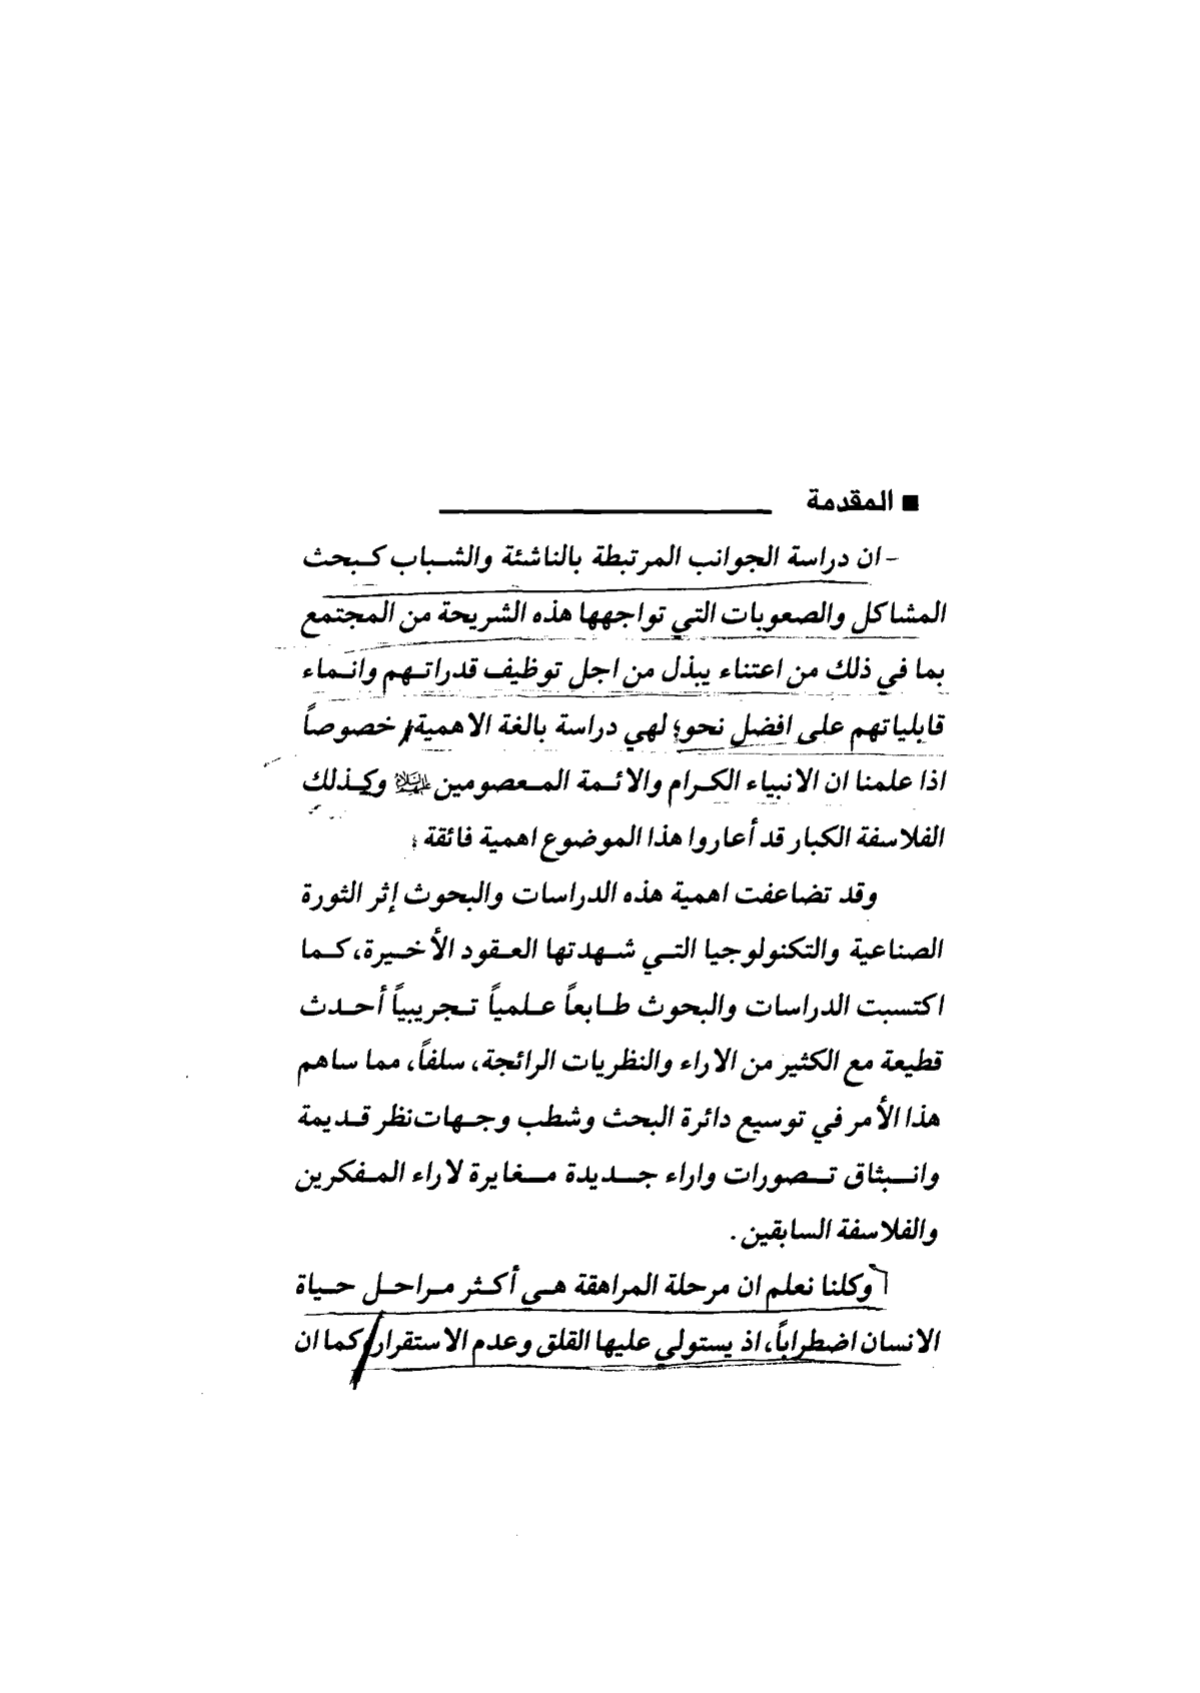 ■ المقدمة
- ان دراسة الجوانب المرتبطة بالناشئة والشباب كبحث
المشاكل والصعوبات التي تواجهها هذه الشريحة من المجتمع
بما في ذلك من اعتناء يبذل من اجل توظيف قدراتهم وانماء
قابلياتهم على افضل نحو؛ لهي دراسة بالغة الاهمية، خصوصاً
اذا علمنا ان الانبياء الكرام والائمة المعصومين وكذلك
الفلاسفة الكبار قد أعاروا هذا الموضوع اهمية فائقة
وقد تضاعفت اهمية هذه الدراسات والبحوث إثر الثورة
الصناعية والتكنولوجيا التي شهدتها العقود الأخيرة، كما
اكتسبت الدراسات والبحوث طابعاً علمياً تجريبياً أحدث
قطيعة مع الكثير من الاراء والنظريات الرائجة، سلفاً، مما ساهم
هذا الأمر في توسيع دائرة البحث وشطب وجهات نظر قديمة
وانبثاق تصورات واراء جديدة مغايرة لاراء المفكرين
والفلاسفة السابقين.
وكلنا نعلم ان مرحلة المراهقة هي أكثر مراحل حياة
الانسان اضطراباً، اذ يستولي عليها القلق وعدم الاستقرار، كما ان